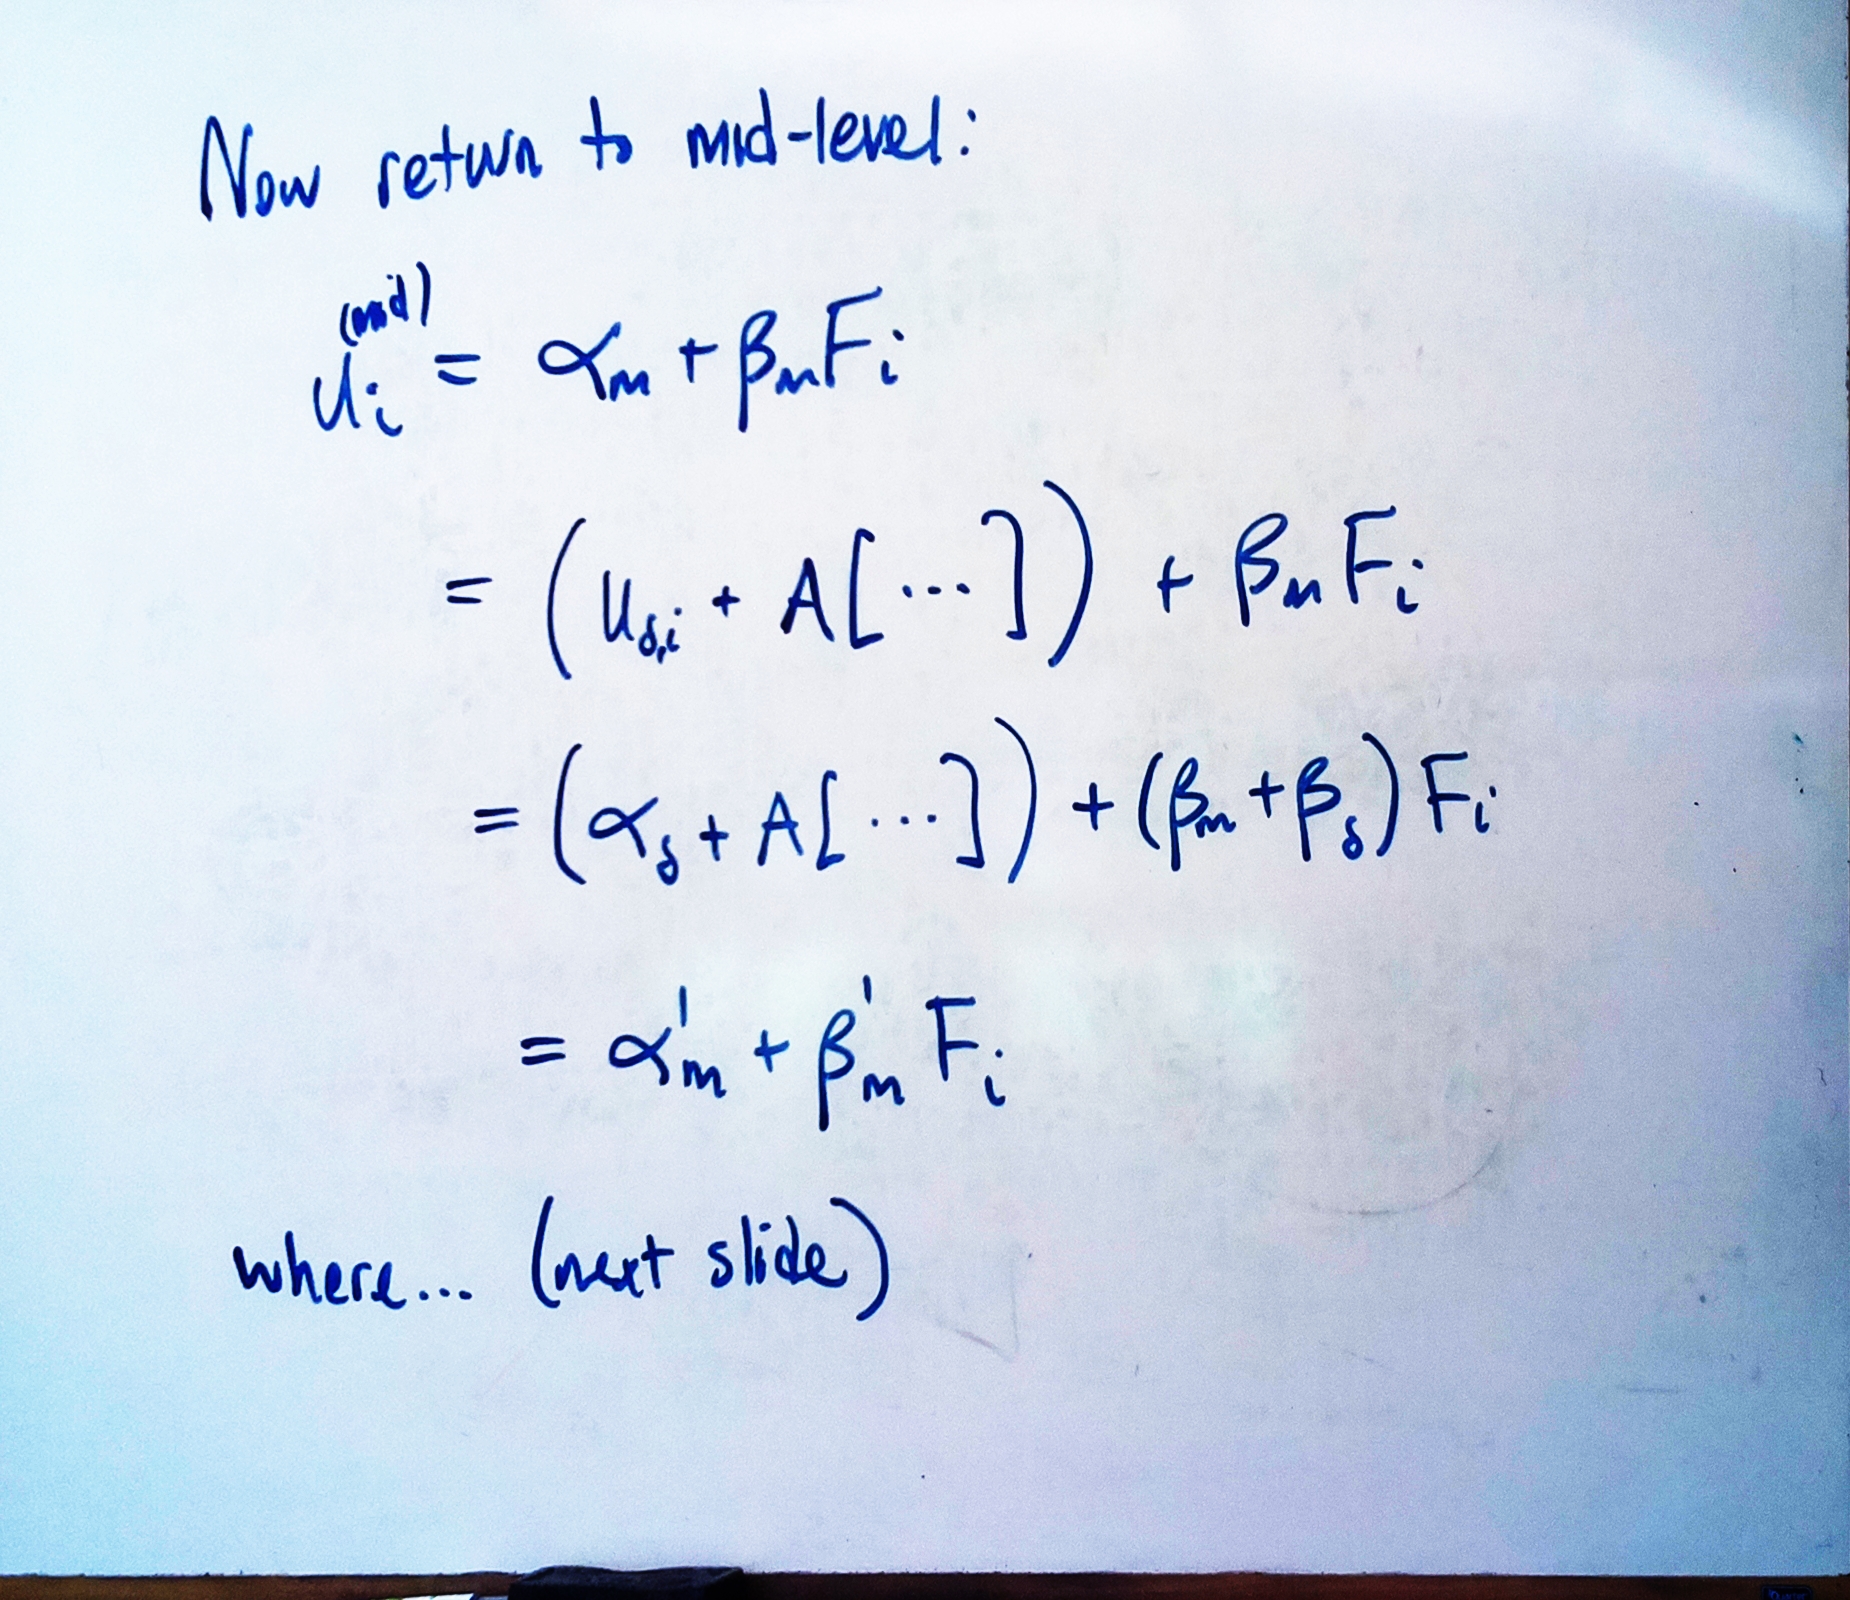 Now return to mid-level:
uᵢ⁽ᵐⁱᵈ⁾ = αₘ + βₘFᵢ
= (u_{δ,i} + A[...]) + βₘFᵢ
= (α_δ + A[...]) + (βₘ + β_δ)Fᵢ
= α'ₘ + β'ₘ Fᵢ
where... (next slide)